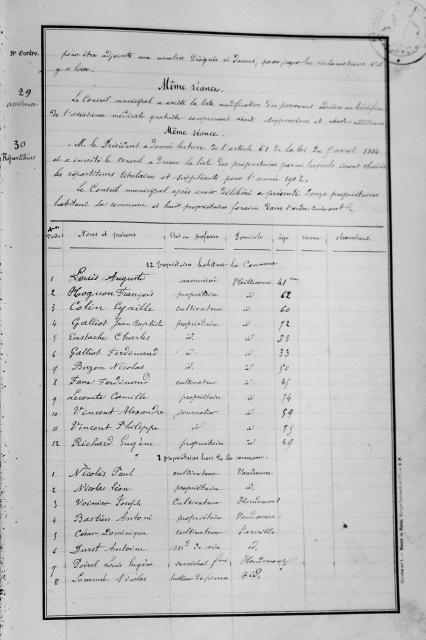 N° d'ordre.
pour être adjoints aux membres désignés ci dessus, pour juger les réclamations s'il
y a lieu.
Même séance.
29
assistance
Le Conseil municipal a arrêté la liste modificative des personnes admises au bénéfice
de l'assistance médicale gratuite comprenant néant suppressions et néant additions
Même séance.
30
Répartiteurs
M. le Président a donné lecture de l'article 61 de la loi du 5 avril 1884
et a invité le conseil à dresser la liste des propriétaires parmi lesquels seront choisis
les répartiteurs titulaires et suppléants pour l'année 1902.
Le Conseil municipal après avoir délibéré a présenté douze propriétaires
habitant la commune et huit propriétaires forains dans l'ordre suivant
Noms et prénoms État ou profession Domicile âge observations
12 propriétaires habitant la Commune
1 Louis Auguste 41 ans
2 Hognon François propriétaire id 62
3 Colin Cyrille cultivateur id 60
4 Galliot Jean Baptiste propriétaire id 72
5 Eustache Charles id. id
6 Galliot Ferdinand id id 33
7 Bazon Nicolas id. id 50
8 Ferdinand cultivateur id 45
9 Lecomte Camille propriétaire id 74
10 Vincent Alexandre journalier id 59
11 Vincent Philippe id id
12 Richard Eugène propriétaire id 49
propriétaires hors de la commune.
1 Nicolas Paul cultivateur
2 Nicolas Léon propriétaire id.
3 Voinier Joseph Cultivateur
4 Bastien Antoine propriétaire
5 César Dominique cultivateur
6 Antoine Md de vin id.
7 Poirel Louis Eugène maréchal
8 Nicolas tailleur de pierres id.